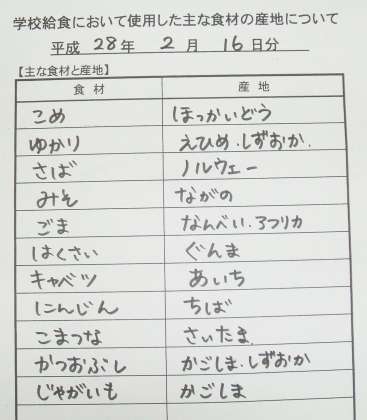 学校給食において使用した主な食材の産地について
平成 28 年 2 月 16 日分
【主な食材と産地】
食材 産地
こめ ほっかいどう
ゆかり えひめ.しずおか.
さば ノルウェー
みそ ながの
ごま なんべい.アフリカ
はくさい ぐんま
キャベツ あいち
にんじん ちば
こまつな さいたま
かつおぶし かごしま.しずおか
じゃがいも かごしま